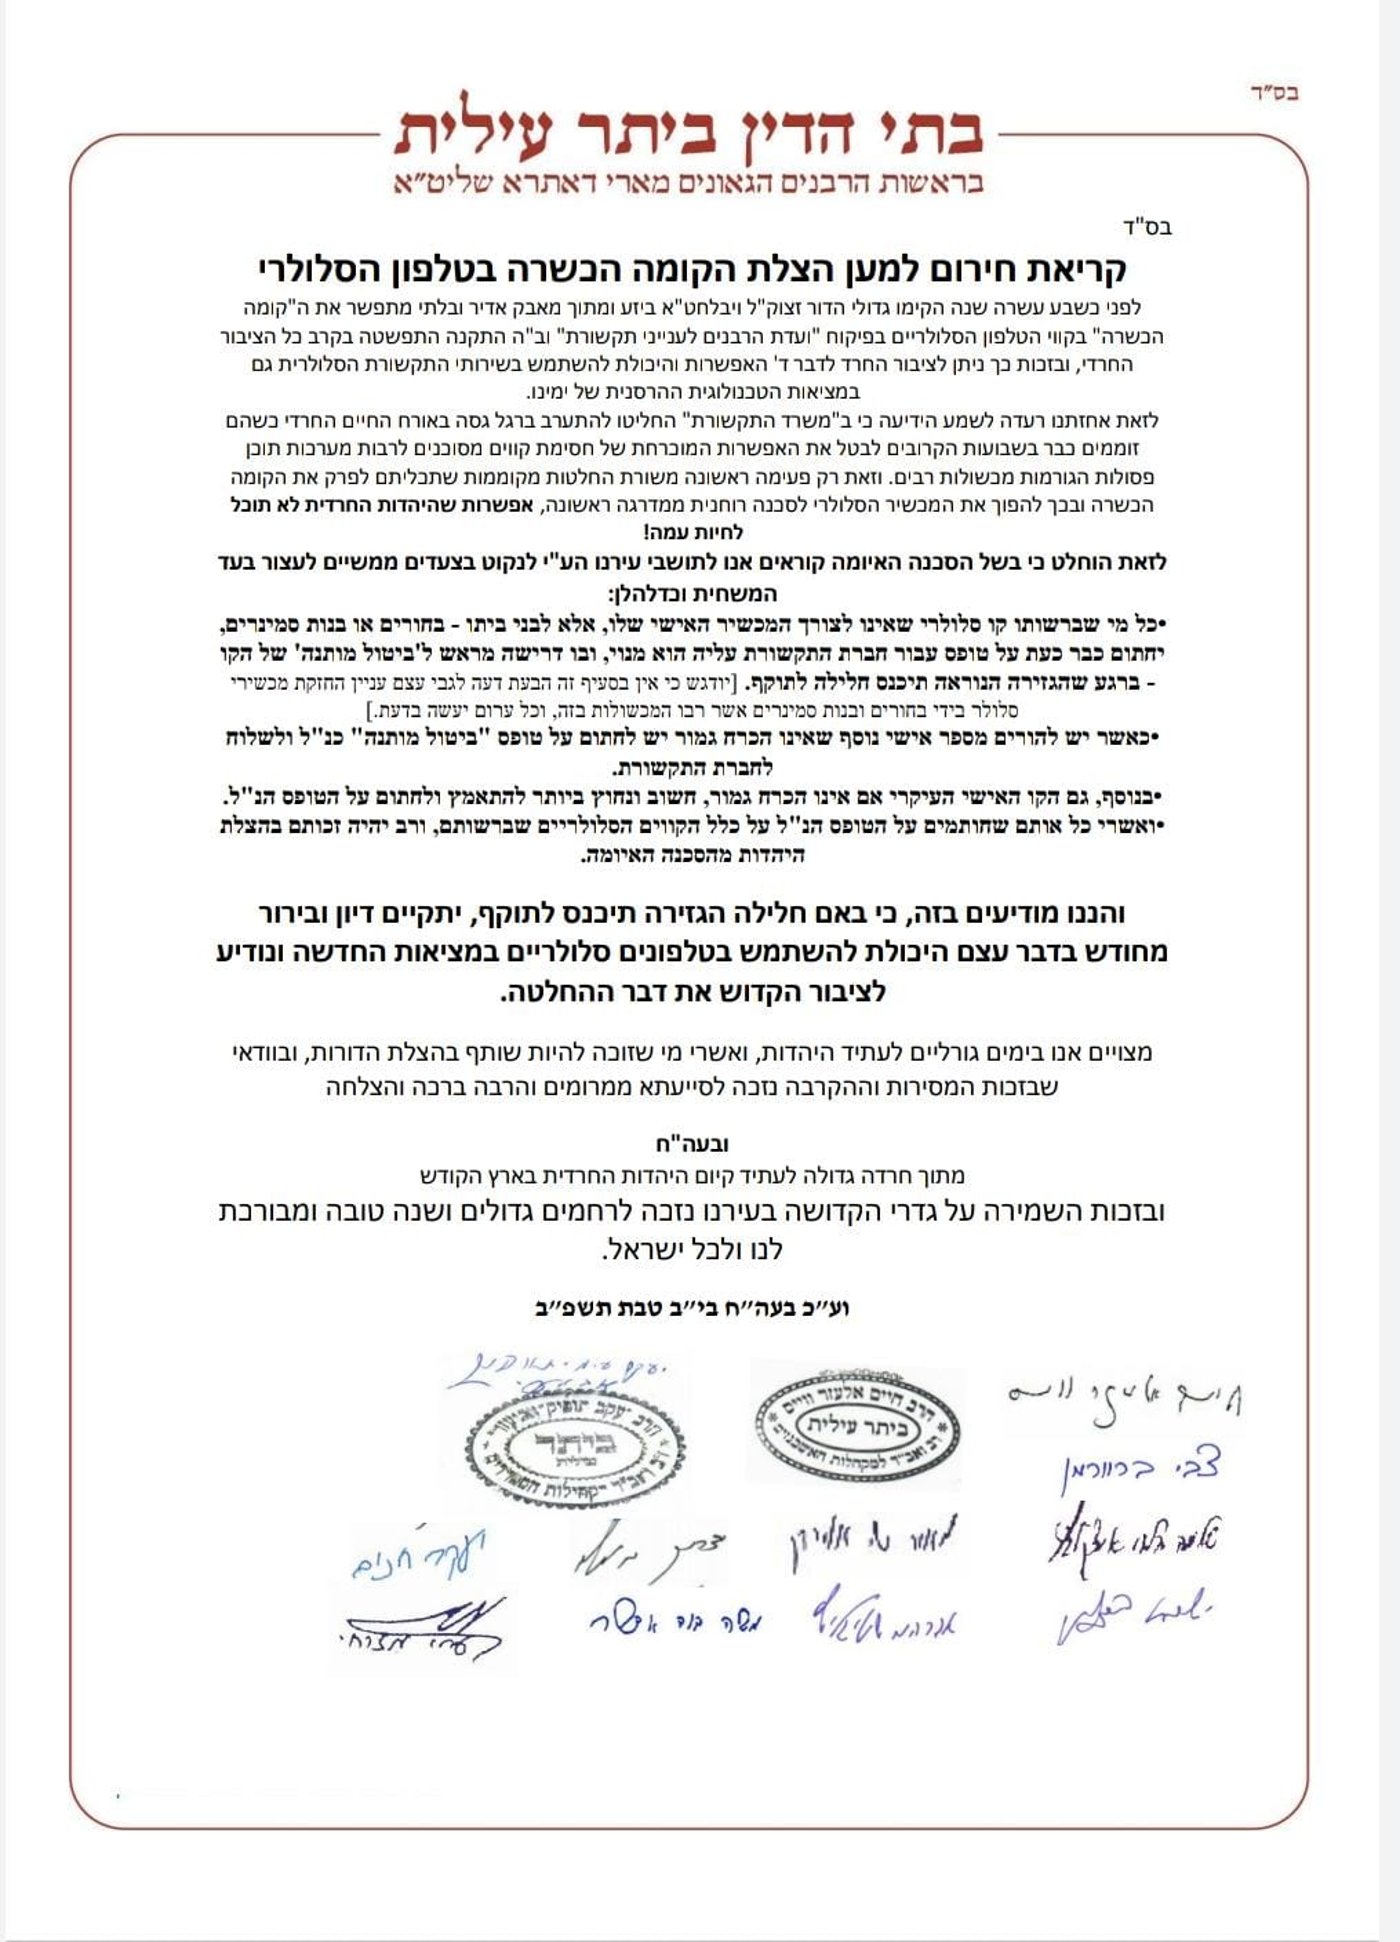 בס״ד
בתי הדין ביתר עילית
בראשות הרבנים הגאונים מארי דאתרא שליט״א
בס"ד
קריאת חירום למען הצלת הקומה הכשרה בטלפון הסלולרי
לפני כשבע עשרה שנה הקימו גדולי הדור זצוק"ל ויבלחט"א ביזע ומתוך מאבק אדיר ובלתי מתפשר את ה"קומה
הכשרה" בקווי הטלפון הסלולריים בפיקוח "ועדת הרבנים לענייני תקשורת" וב"ה התקנה התפשטה בקרב כל הציבור
החרדי, ובזכות כך ניתן לציבור החרד לדבר ד' האפשרות והיכולת להשתמש בשירותי התקשורת הסלולרית גם
במציאות הטכנולוגית ההרסנית של ימינו.
לזאת אחזתנו רעדה לשמע הידיעה כי ב"משרד התקשורת" החליטו להתערב ברגל גסה באורח החיים החרדי כשהם
זוממים כבר בשבועות הקרובים לבטל את האפשרות המוכרחת של חסימת קווים מסוכנים לרבות מערכות תוכן
פסולות הגורמות מכשולות רבים. וזאת רק פעימה ראשונה משורת החלטות מקוממות שתכליתם לפרק את הקומה
הכשרה ובכך להפוך את המכשיר הסלולרי לסכנה רוחנית ממדרגה ראשונה, אפשרות שהיהדות החרדית לא תוכל
לחיות עמה!
לזאת הוחלט כי בשל הסכנה האיומה קוראים אנו לתושבי עירנו הע"י לנקוט בצעדים ממשיים לעצור בעד
המשחית וכדלהלן:
•כל מי שברשותו קו סלולרי שאינו לצורך המכשיר האישי שלו, אלא לבני ביתו - בחורים או בנות סמינרים,
יחתום כבר כעת על טופס עבור חברת התקשורת עליה הוא מנוי, ובו דרישה מראש ל'ביטול מותנה' של הקו
- ברגע שהגזירה הנוראה תיכנס חלילה לתוקף. [יודגש כי אין בסעיף זה הבעת דעה לגבי עצם עניין החזקת מכשירי
סלולר בידי בחורים ובנות סמינרים אשר רבו המכשולות בזה, וכל ערום יעשה בדעת.]
•כאשר יש להורים מספר אישי נוסף שאינו הכרח גמור יש לחתום על טופס "ביטול מותנה" כנ"ל ולשלוח
לחברת התקשורת.
•בנוסף, גם הקו האישי העיקרי אם אינו הכרח גמור, חשוב ונחוץ ביותר להתאמץ ולחתום על הטופס הנ"ל.
•ואשרי כל אותם שחותמים על הטופס הנ"ל על כלל הקווים הסלולריים שברשותם, ורב יהיה זכותם בהצלת
היהדות מהסכנה האיומה.
והננו מודיעים בזה, כי באם חלילה הגזירה תיכנס לתוקף, יתקיים דיון ובירור
מחודש בדבר עצם היכולת להשתמש בטלפונים סלולריים במציאות החדשה ונודיע
לציבור הקדוש את דבר ההחלטה.
מצויים אנו בימים גורליים לעתיד היהדות, ואשרי מי שזוכה להיות שותף בהצלת הדורות, ובוודאי
שבזכות המסירות וההקרבה נזכה לסייעתא ממרומים והרבה ברכה והצלחה
ובעה"ח
מתוך חרדה גדולה לעתיד קיום היהדות החרדית בארץ הקודש
ובזכות השמירה על גדרי הקדושה בעירנו נזכה לרחמים גדולים ושנה טובה ומבורכת
לנו ולכל ישראל.
וע״כ בעה״ח בי״ב טבת תשפ״ב
הרב חיים אלעזר ווייס
ביתר עילית
רב ואב״ד למקהלות האשכנזים
הרב יעקב תופיק
ביתר
צבי ברוורמן
משה בוד
אברהם
יעקב חנניה
מזרחי